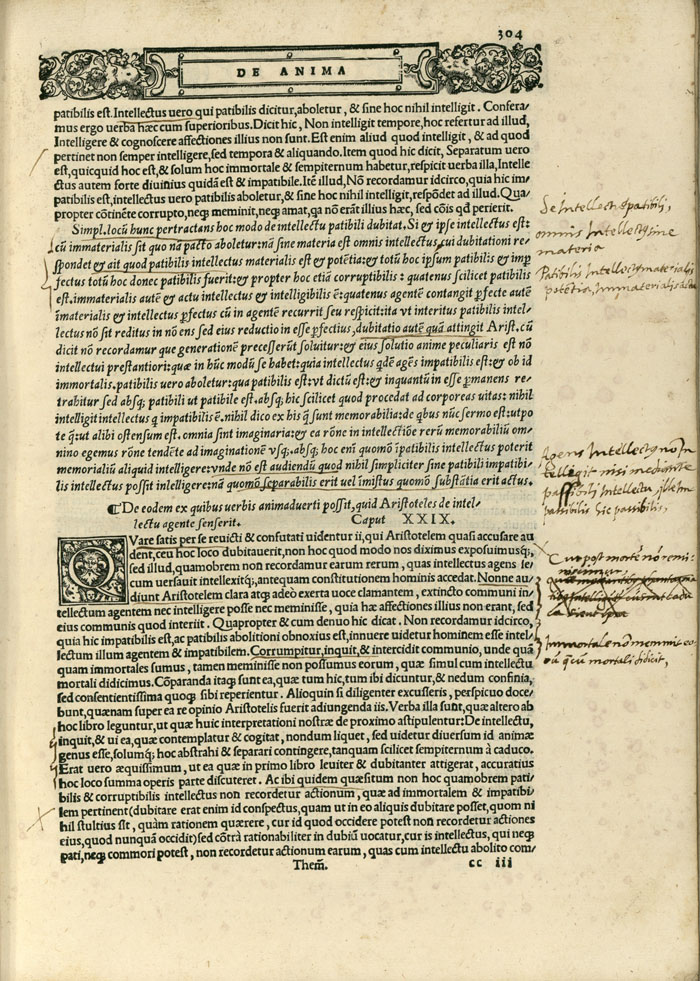 304
DE ANIMA
patibilis est. Intellectus uero qui patibilis dicitur, aboletur, & sine hoc nihil intelligit. Confera/
mus ergo uerba hæc cum superioribus. Dicit hic, Non intelligit tempore, hoc refertur ad illud,
Intelligere & cognoscere affectiones illius non sunt. Est enim aliud quod intelligit, & ad quod
pertinet non semper intelligere, sed tempora & aliquando. Item quod hic dicit, Separatum uero
est, quicquid hoc est, & solum hoc immortale & sempiternum habetur, respicit uerba illa, Intelle
ctus autem forte diuinius quidã est & impatibile. Itẽ illud, Nõ recordamur idcirco, quia hic im/
patibilis est, intellectus uero patibilis aboletur, & sine hoc nihil intelligit, respõdet ad illud. Qua/
propter cõtinẽte corrupto, neq; meminit, neq; amat, qa nõ erãt illius hæc, sed cõis qd perierit.
Simpl. locũ hunc pertractans hoc modo de intellectu patibili dubitat. Si & ipse intellectus est:
cũ immaterialis sit quo nã pacto aboletur: nã sine materia est omnis intellectus, cui dubitationi re/
spondet & ait quod patibilis intellectus materialis est & potẽtia: & totũ hoc ipsum patibilis & imp
fectus totũ hoc donec patibilis fuerit: & propter hoc etiã corruptibilis: quatenus scilicet patibilis
est, immaterialis autẽ & actu intellectus & intelligibilis ẽ: quatenus agentẽ contangit pfecte autẽ
ĩmaterialis & intellectus pfectus cũ in agentẽ recurrit seu respicit: ita vt interitus patibilis intel/
lectus nõ sit reditus in nõ ens sed eius reductio in esse pfectius, dubitatio autẽ quã attingit Arist. cũ
dicit nõ recordamur que generationẽ precesserũt soluitur: & eius solutio anime peculiaris est nõ
intellectui prestantiori: quæ in hũc modũ se habet: quia intellectus qdẽ agẽs impatibilis est: & ob id
immortalis. patibilis uero aboletur: qua patibilis est: vt dictũ est: & inquantũ in esse pmanens re/
trahitur sed absq; patibili ut patibile est. absq; hic scilicet quod procedat ad corporeas uitas: nihil
intelligit intellectus q impatibilis ẽ. nihil dico ex his q sunt memorabilia: de qbus nũc sermo est: utpo
te q: ut alibi ostensum est. omnia sint imaginaria: & ea rõne in intellectiõe rerũ memorabiliũ om/
nino egemus rõne tendẽte ad imaginationẽ vsq;. absq; hoc enĩ quomõ ĩpatibilis intellectus poterit
memorialiũ aliquid intelligere: vnde nõ est audiendũ quod nihil simpliciter sine patibili impatibi/
lis intellectus possit inlelligere: nã quomõ separabilis erit uel ĩmistus quomõ substãtia erit actus.
¶ De eodem ex quibus uerbis animaduerti possit, quid Aristoteles de intel/
lectu agente senserit. Caput XXIX.
QVare satis per se reuicti & confutati uidentur ii, qui Aristotelem quasi accusare au
dent, ceu hoc loco dubitauerit, non hoc quod modo nos diximus exposuimusq;,
sed illud, quamobrem non recordamur earum rerum, quas intellectus agens se/
cum uersauit intellexitq;, antequam constitutionem hominis accedat. Nonne au/
diunt Aristotelem clara atq; adeo exerta uoce clamantem, extincto communi in/
tellectum agentem nec intelligere posse nec meminisse, quia hæ affectiones illius non erant, sed
eius communis quod interiit. Quapropter & cum denuo hic dicat. Non recordamur idcirco,
quia hic impatibilis est, ac patibilis abolitioni obnoxius est, innuere uidetur hominem esse intel/
lectum illum agentem & impatibilem. Corrumpitur, inquit, & intercidit communio, unde quã
quam immortales sumus, tamen meminisse non possumus eorum, quæ simul cum intellectu
mortali didicimus. Cõparanda itaq; sunt ea, quæ tum hic, tum ibi dicuntur, & nedum confinia,
sed consentientissima quoq; sibi reperientur. Alioquin si diligenter excusseris, perspicuo doce/
bunt, quænam super ea re opinio Aristotelis fuerit adiungenda iis. Verba illa sunt, quæ altero ab
hoc libro leguntur, ut quæ huic interpretationi nostræ de proximo astipulentur: De intellectu,
inquit, & ui ea, quæ contemplatur & cogitat, nondum liquet, sed uidetur diuersum id animæ
genus esse, solumq; hoc abstrahi & separari contingere, tanquam scilicet sempiternum à caduco.
Erat uero æquissimum, ut ea quæ in primo libro leuiter & dubitanter attigerat, accuratius
hoc loco summa operis parte discuteret. Ac ibi quidem quæsitum non hoc quamobrem pati/
bilis & corruptibilis intellectus non recordetur actionum, quæ ad immortalem & impatibi/
lem pertinent (dubitare erat enim id conspectus, quam ut in eo aliquis dubitare posset, quom ni
hil stultius sit, quàm rationem quærere, cur id quod occidere potest non recordetur actiones
eius, quod nunquã occidit) sed cõtrà rationabiliter in dubiũ uocatur, cur is intellectus, qui neq;
pati, neq; commori potest, non recordetur actionum earum, quas cum intellectu abolito com/
Them̃. cc iii
Se Intellectus patibilis,
omnis Intellectus sine
materia
Patibilis Intellectus materialis
potẽtia, Immaterialis actu
Agens Intellectus nõ In
tellegit nisi mediante
passibili Intellectu
passibilis
Cur post mortẽ nõ remi-
niscimur,
Immortale nõ meminit eo-
rũ cũ mortali didicit,